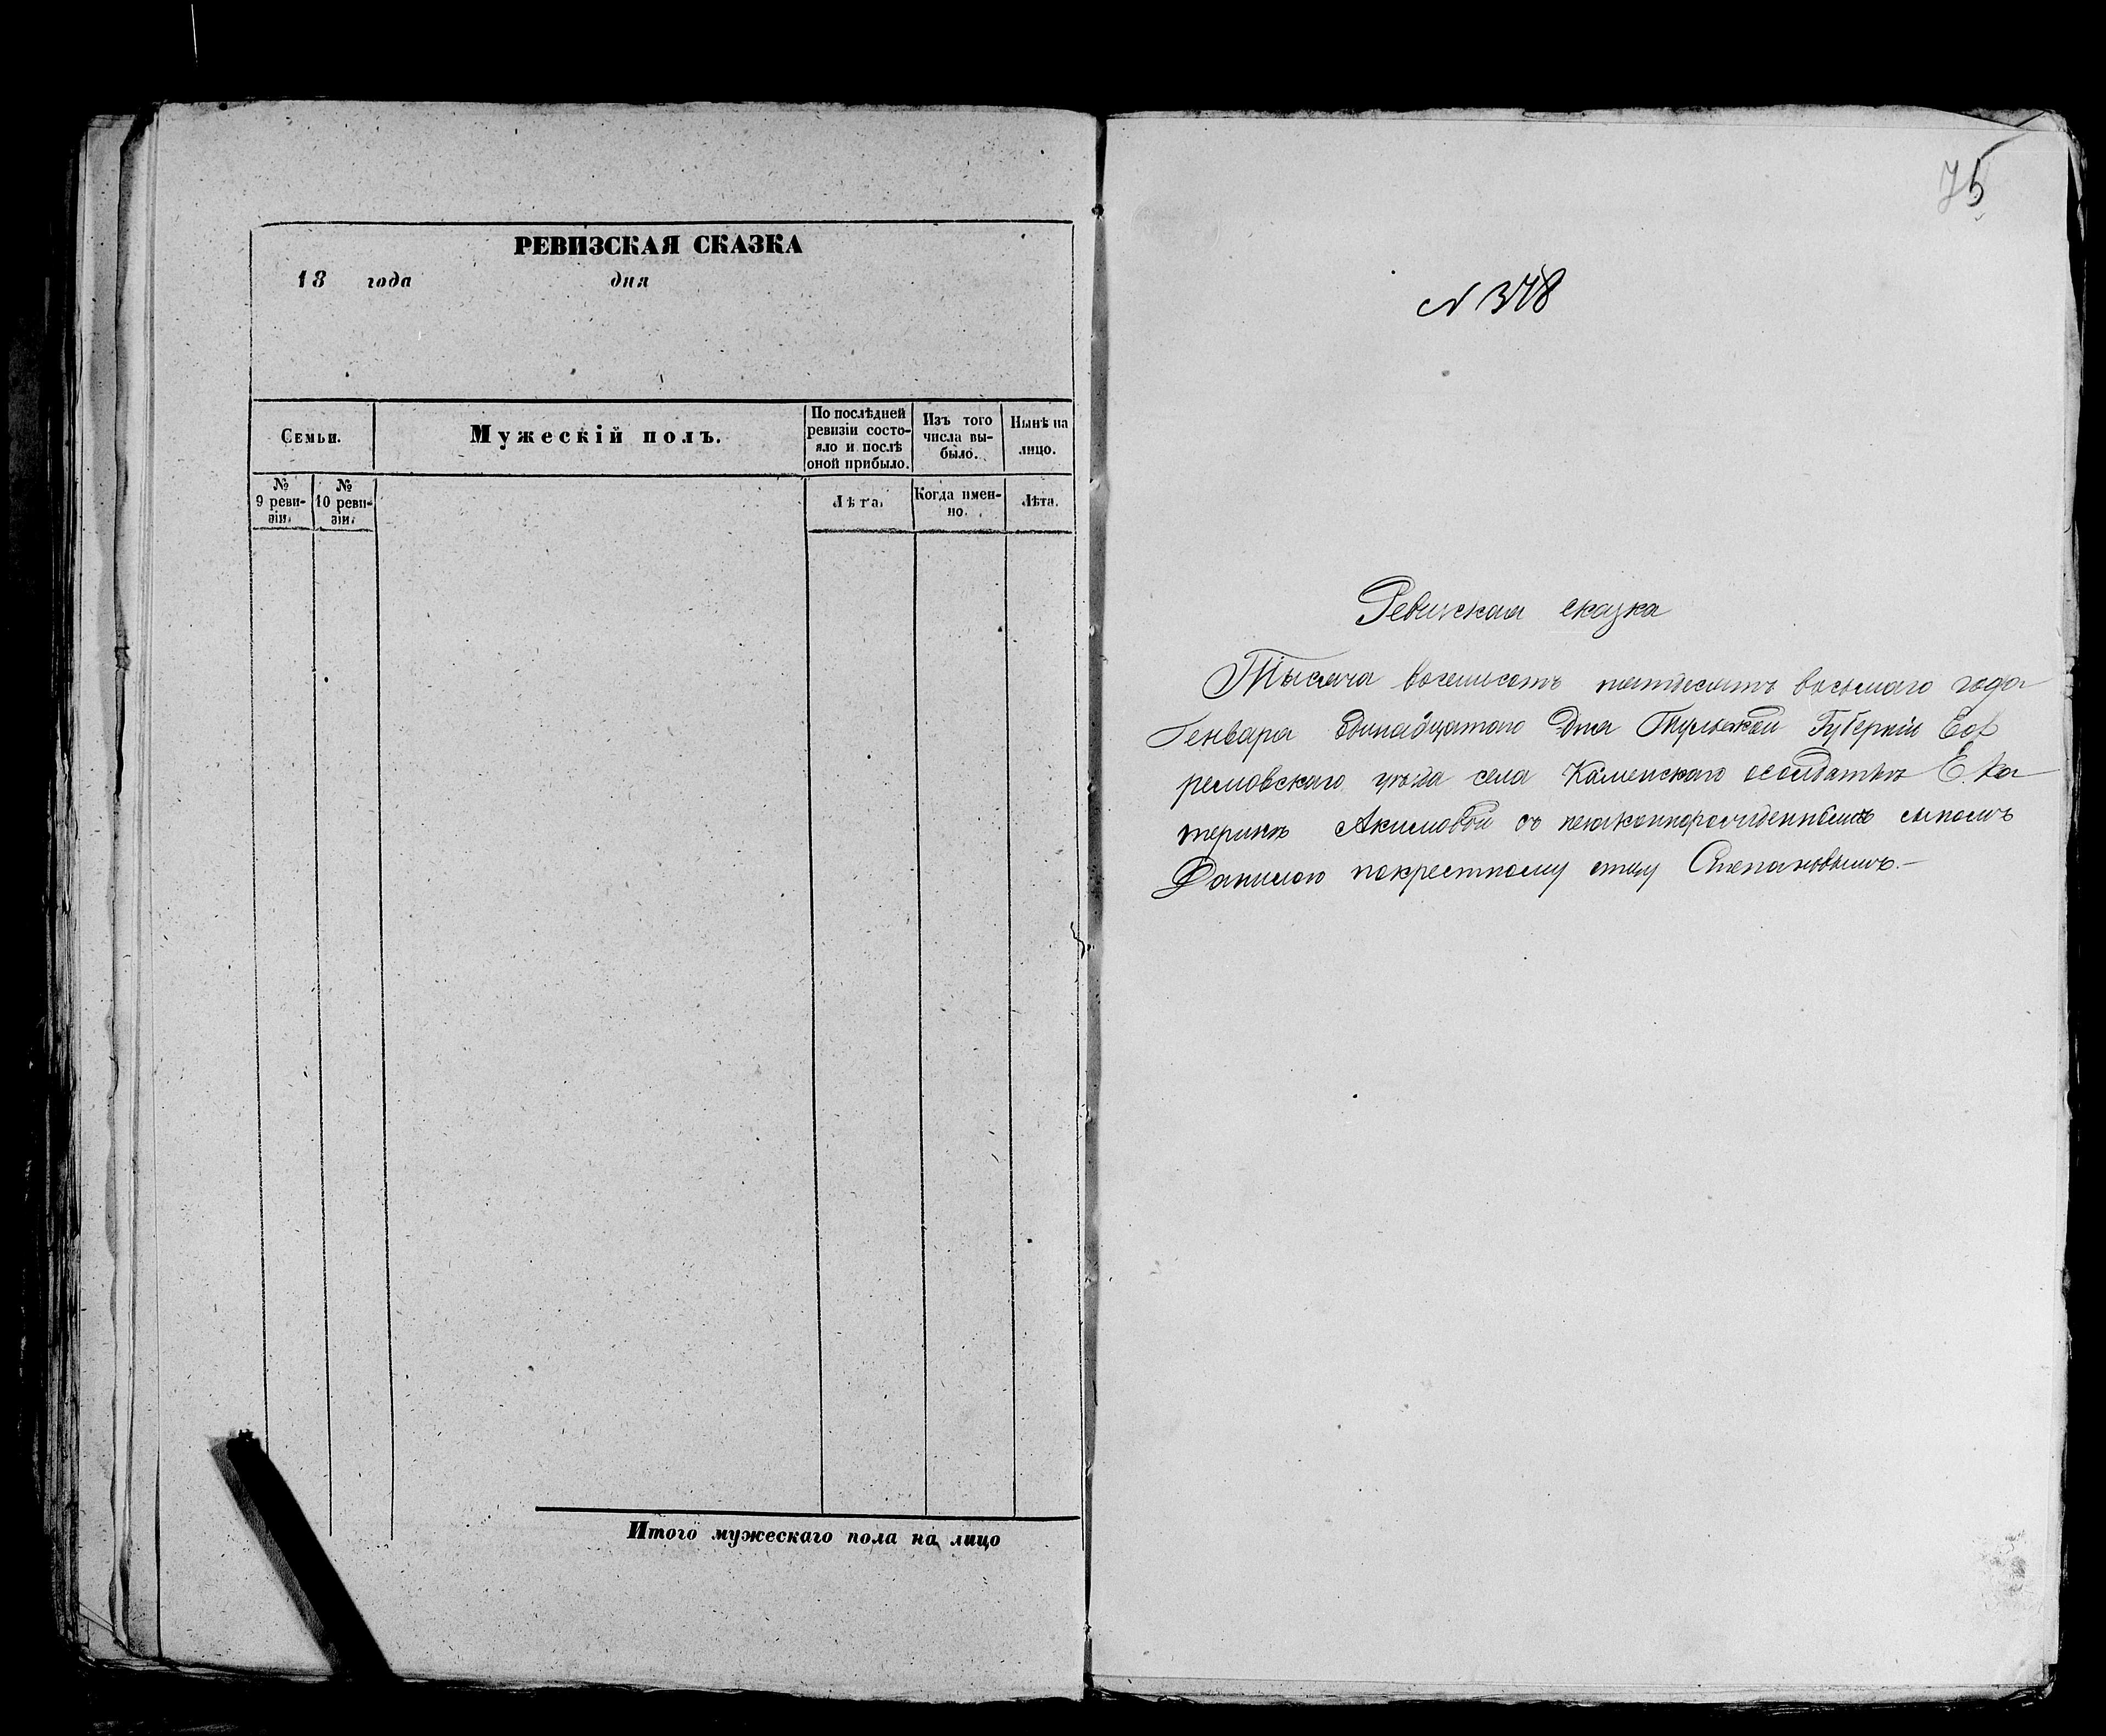 РЕВИЗСКАЯ СКАЗКА
18 года дня
Семьи.
Мужескій полъ.
По послѣдней
ревизіи состо-
яло и послѣ
оной прибыло.
Изъ того
числа вы-
было.
Нынѣ на
лицо.
№
9 реви-
зіи.
№
10 реви-
зіи.
Лѣта.
Когда имен-
но.
Лѣта.
Итого мужескаго пола на лицо
75
N 378
Ревизская сказка
Тысяча восемьсотъ пятдесятъ восьмаго года
Генваря Одинадцатого Дня Тульской Губерніи Еф
ремовскаго уѣзда села Каменскаго осолдаткѣ Ека
теринѣ Акимовой съ незаконнорожденнымъ сыномъ
Данилою покрестному отцу Степановымъ.-